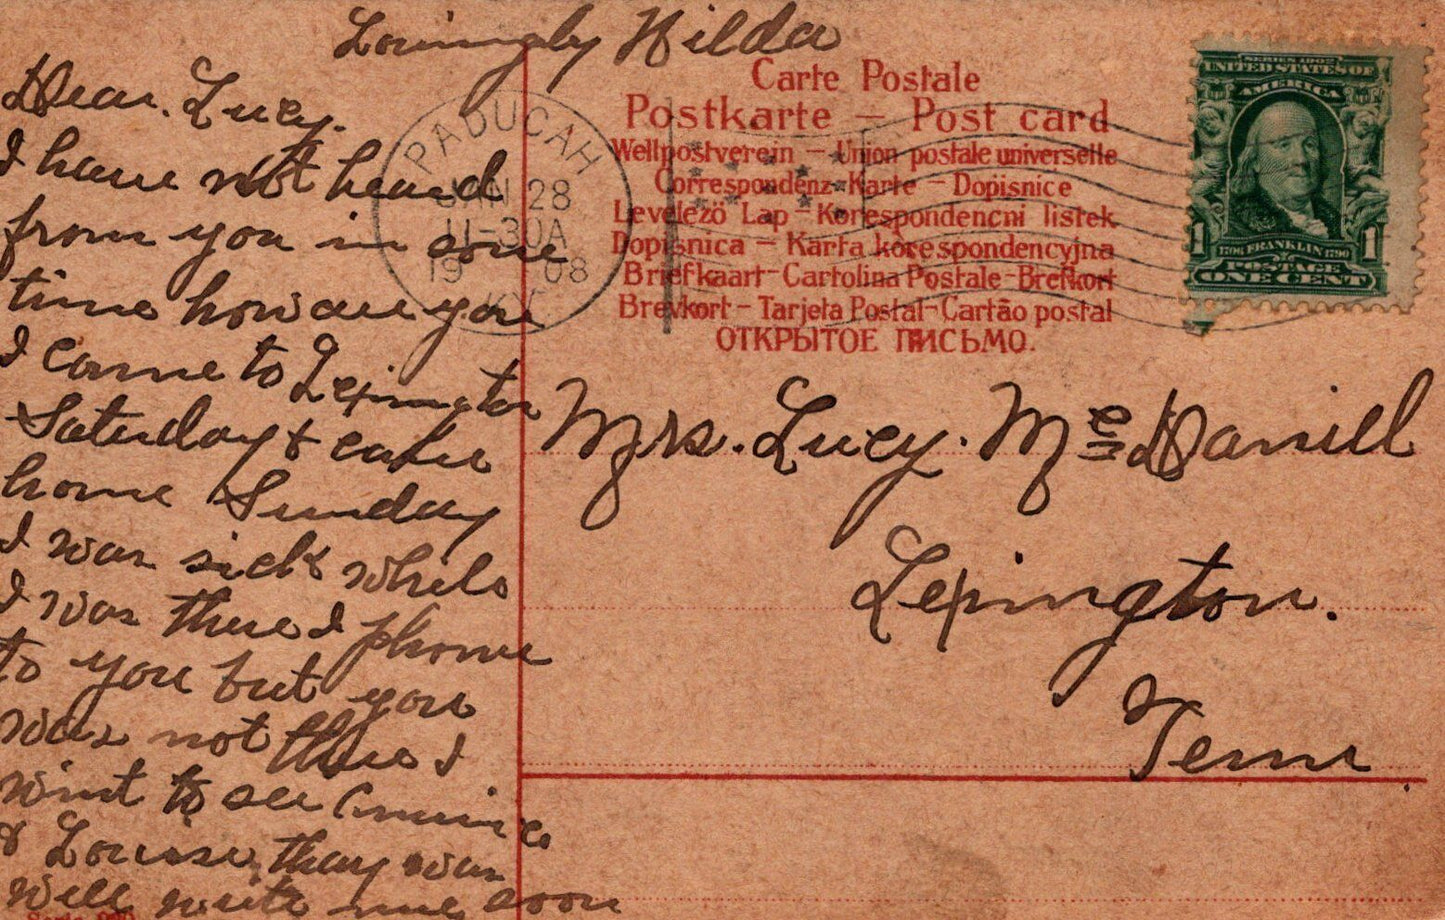 Lovingly Hilda
Dear. Lucy.
I have not heard
from you in some
time how are you
I came to Lexington
Saturday & came
home Sunday
I was sick while
I was there I phone
to you but you
was not there I
went to see
& Louise, thay was
well write me soon
PADUCAH
JAN 28
11-30A
19 08
KY.
Carte Postale
Postkarte — Post card
Weltpostverein — Union postale universelle
Correspondenz-Karte — Dopisnice
Levelező Lap — Korespondencni listek
Dopisnica — Karta korespondencyjna
Briefkaart — Cartolina Postale — Brefkort
Brevkort — Tarjeta Postal — Cartão postal
ОТКРЫТОЕ ПИСЬМО.
SERIES 1902
UNITED STATES OF
AMERICA
1706 FRANKLIN 1790
1 1
POSTAGE
ONE CENT
Mrs. Lucy. McDaniell
Lexington.
Tenn
Serie